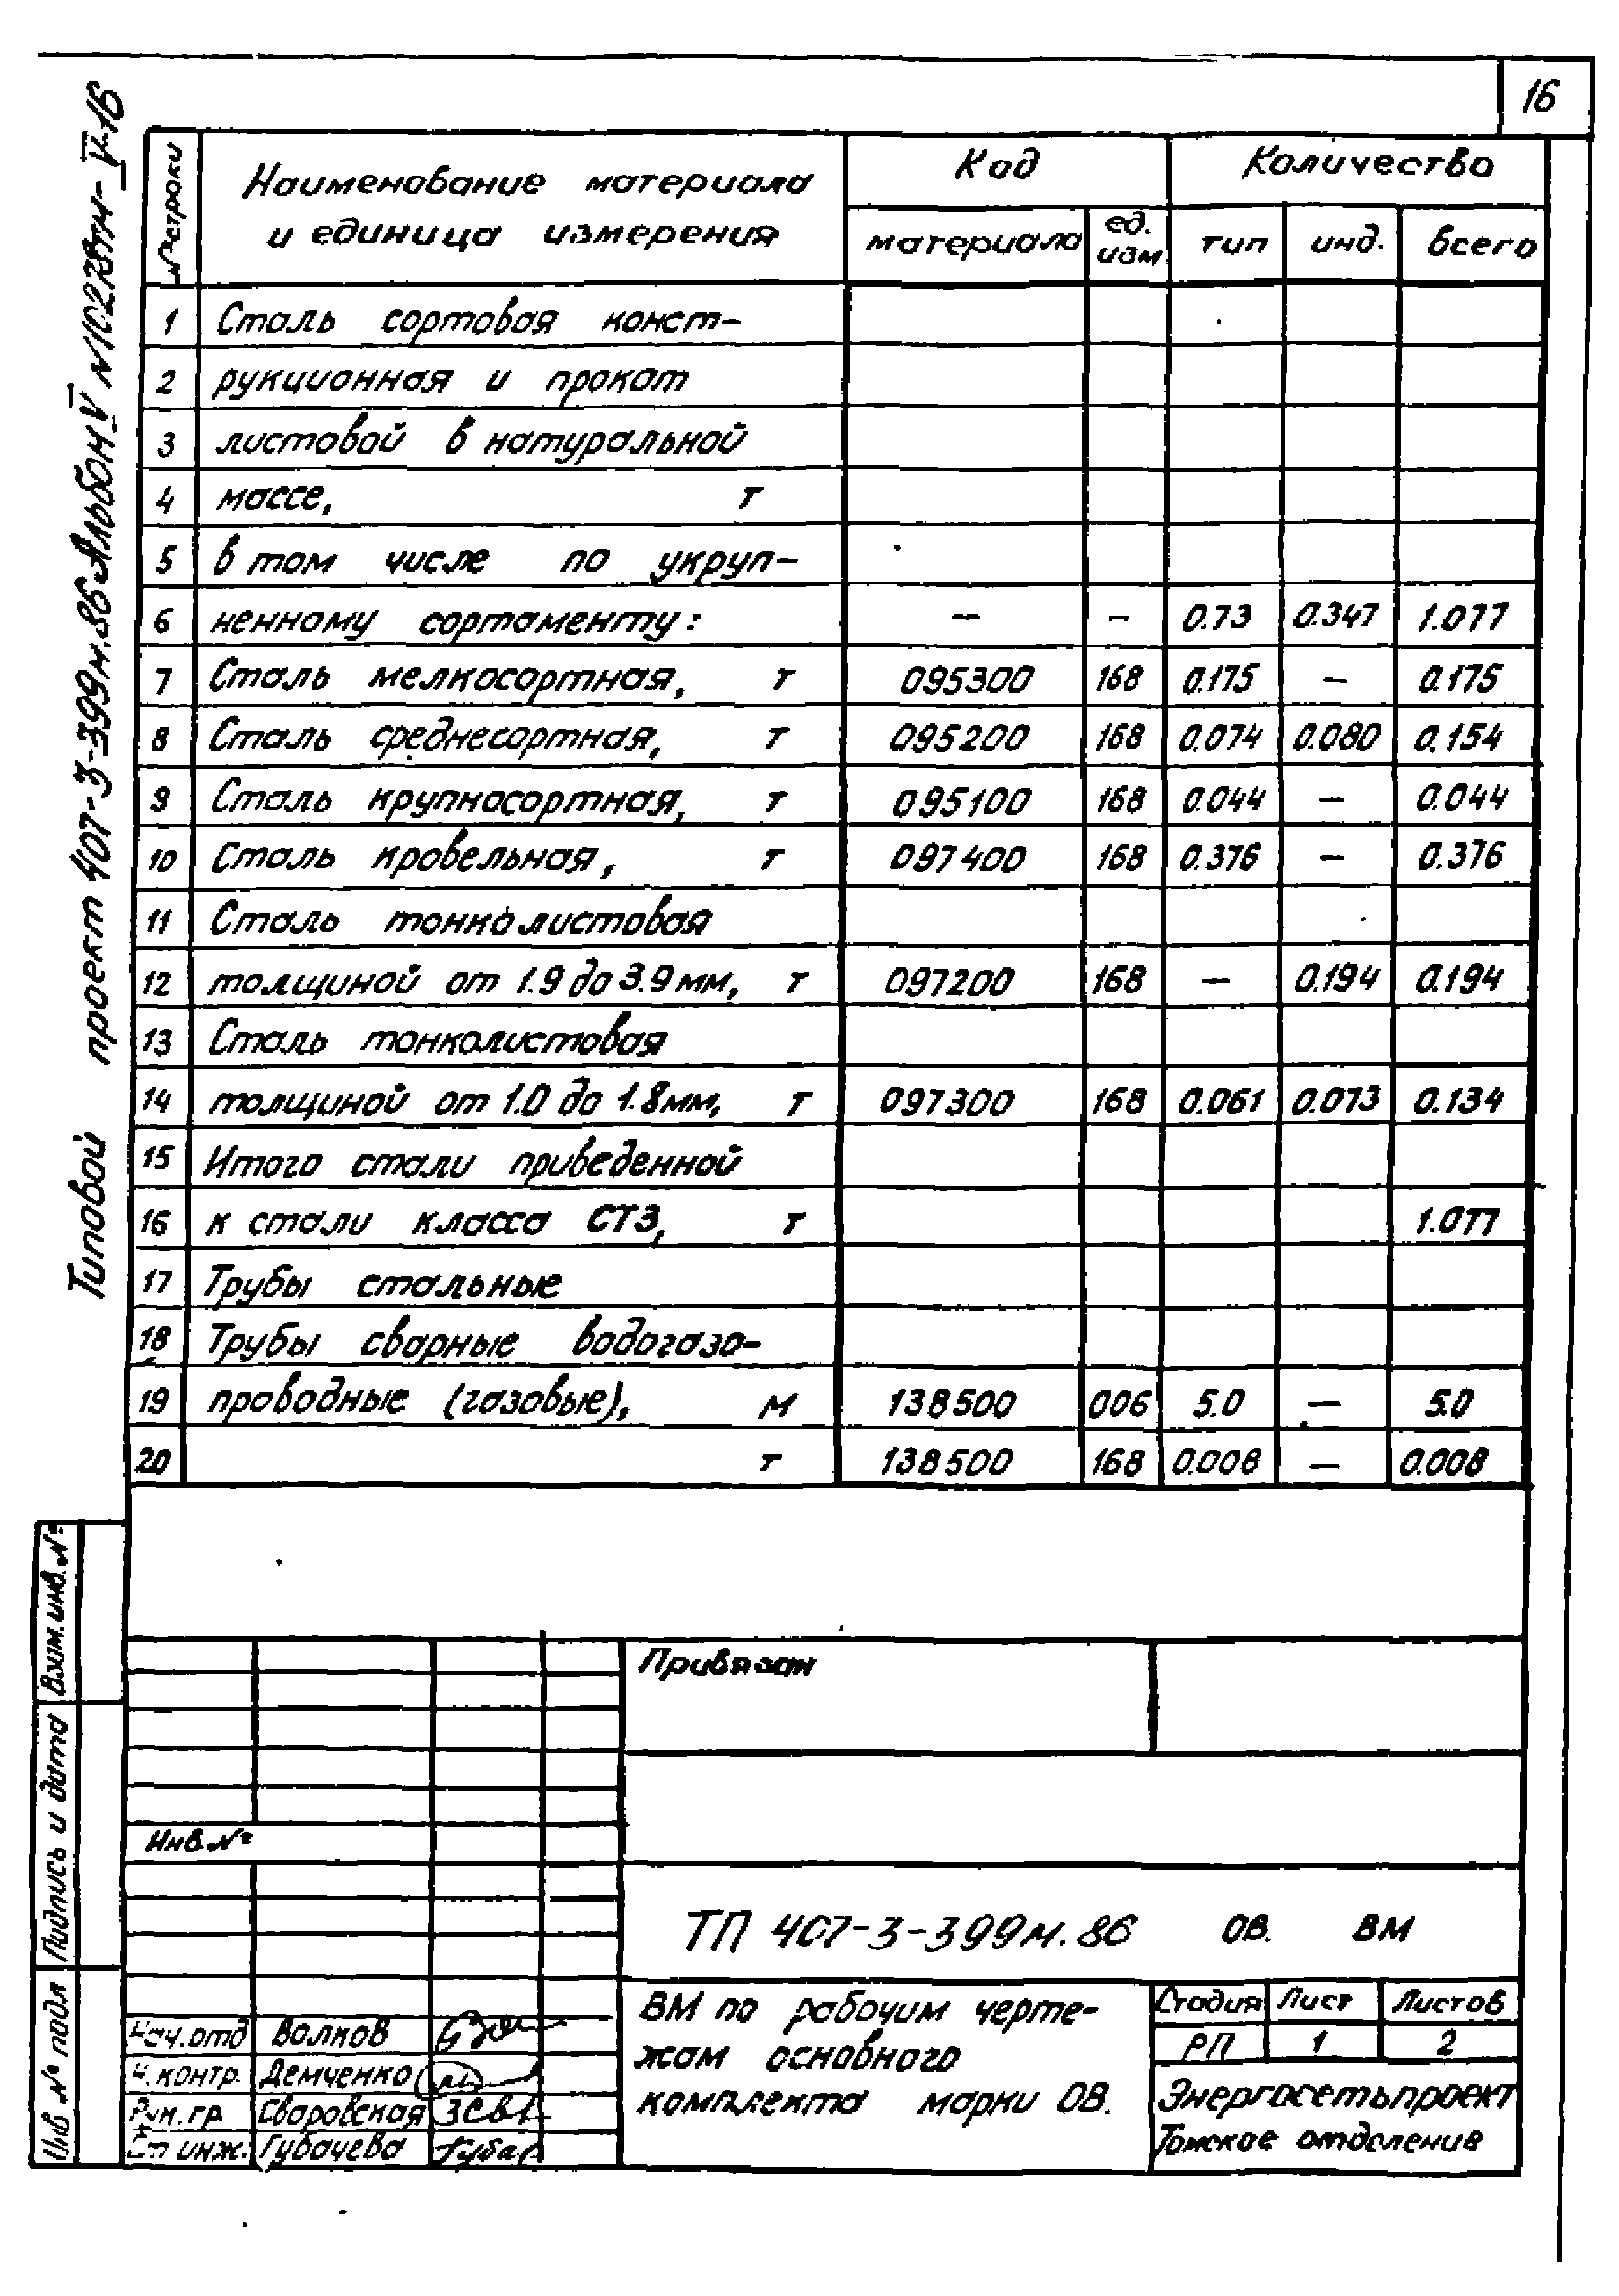 16
Типовой проект 407-3-399м.86 Альбом V N10228тм-V-16
№ строки
Наименование материала
и единица измерения
Код
Количество
материала
ед. изм
тип
инд.
всего
1 Сталь сортовая конст-
2 рукционная и прокат
3 листовой в натуральной
4 массе, т
5 в том числе по укруп-
6 ненному сортаменту: — — 0.73 0.347 1.077
7 Сталь мелкосортная, т 095300 168 0.175 — 0.175
8 Сталь среднесортная, т 095200 168 0.074 0.080 0.154
9 Сталь крупносортная, т 095100 168 0.044 — 0.044
10 Сталь кровельная, т 097400 168 0.376 — 0.376
11 Сталь тонколистовая
12 толщиной от 1.9 до 3.9 мм, т 097200 168 — 0.194 0.194
13 Сталь тонколистовая
14 толщиной от 1.0 до 1.8 мм, т 097300 168 0.061 0.073 0.134
15 Итого стали приведенной
16 к стали класса СТ3, т 1.077
17 Трубы стальные
18 Трубы сварные водогазо-
19 проводные (газовые), м 138500 006 5.0 — 5.0
20 т 138500 168 0.008 — 0.008
Взам. инв. №
Подпись и дата
Инв № подл
Привязан
Инв. №
ТП 407-3-399м.86 ОВ. ВМ
Нач. отд Волков
Н. контр. Демченко
Рук. гр Сваровская
Ст инж. Губачева
ВМ по рабочим черте-
жам основного
комплекта марки ОВ.
Стадия Лист Листов
РП 1 2
Энергосетьпроект
Томское отделение